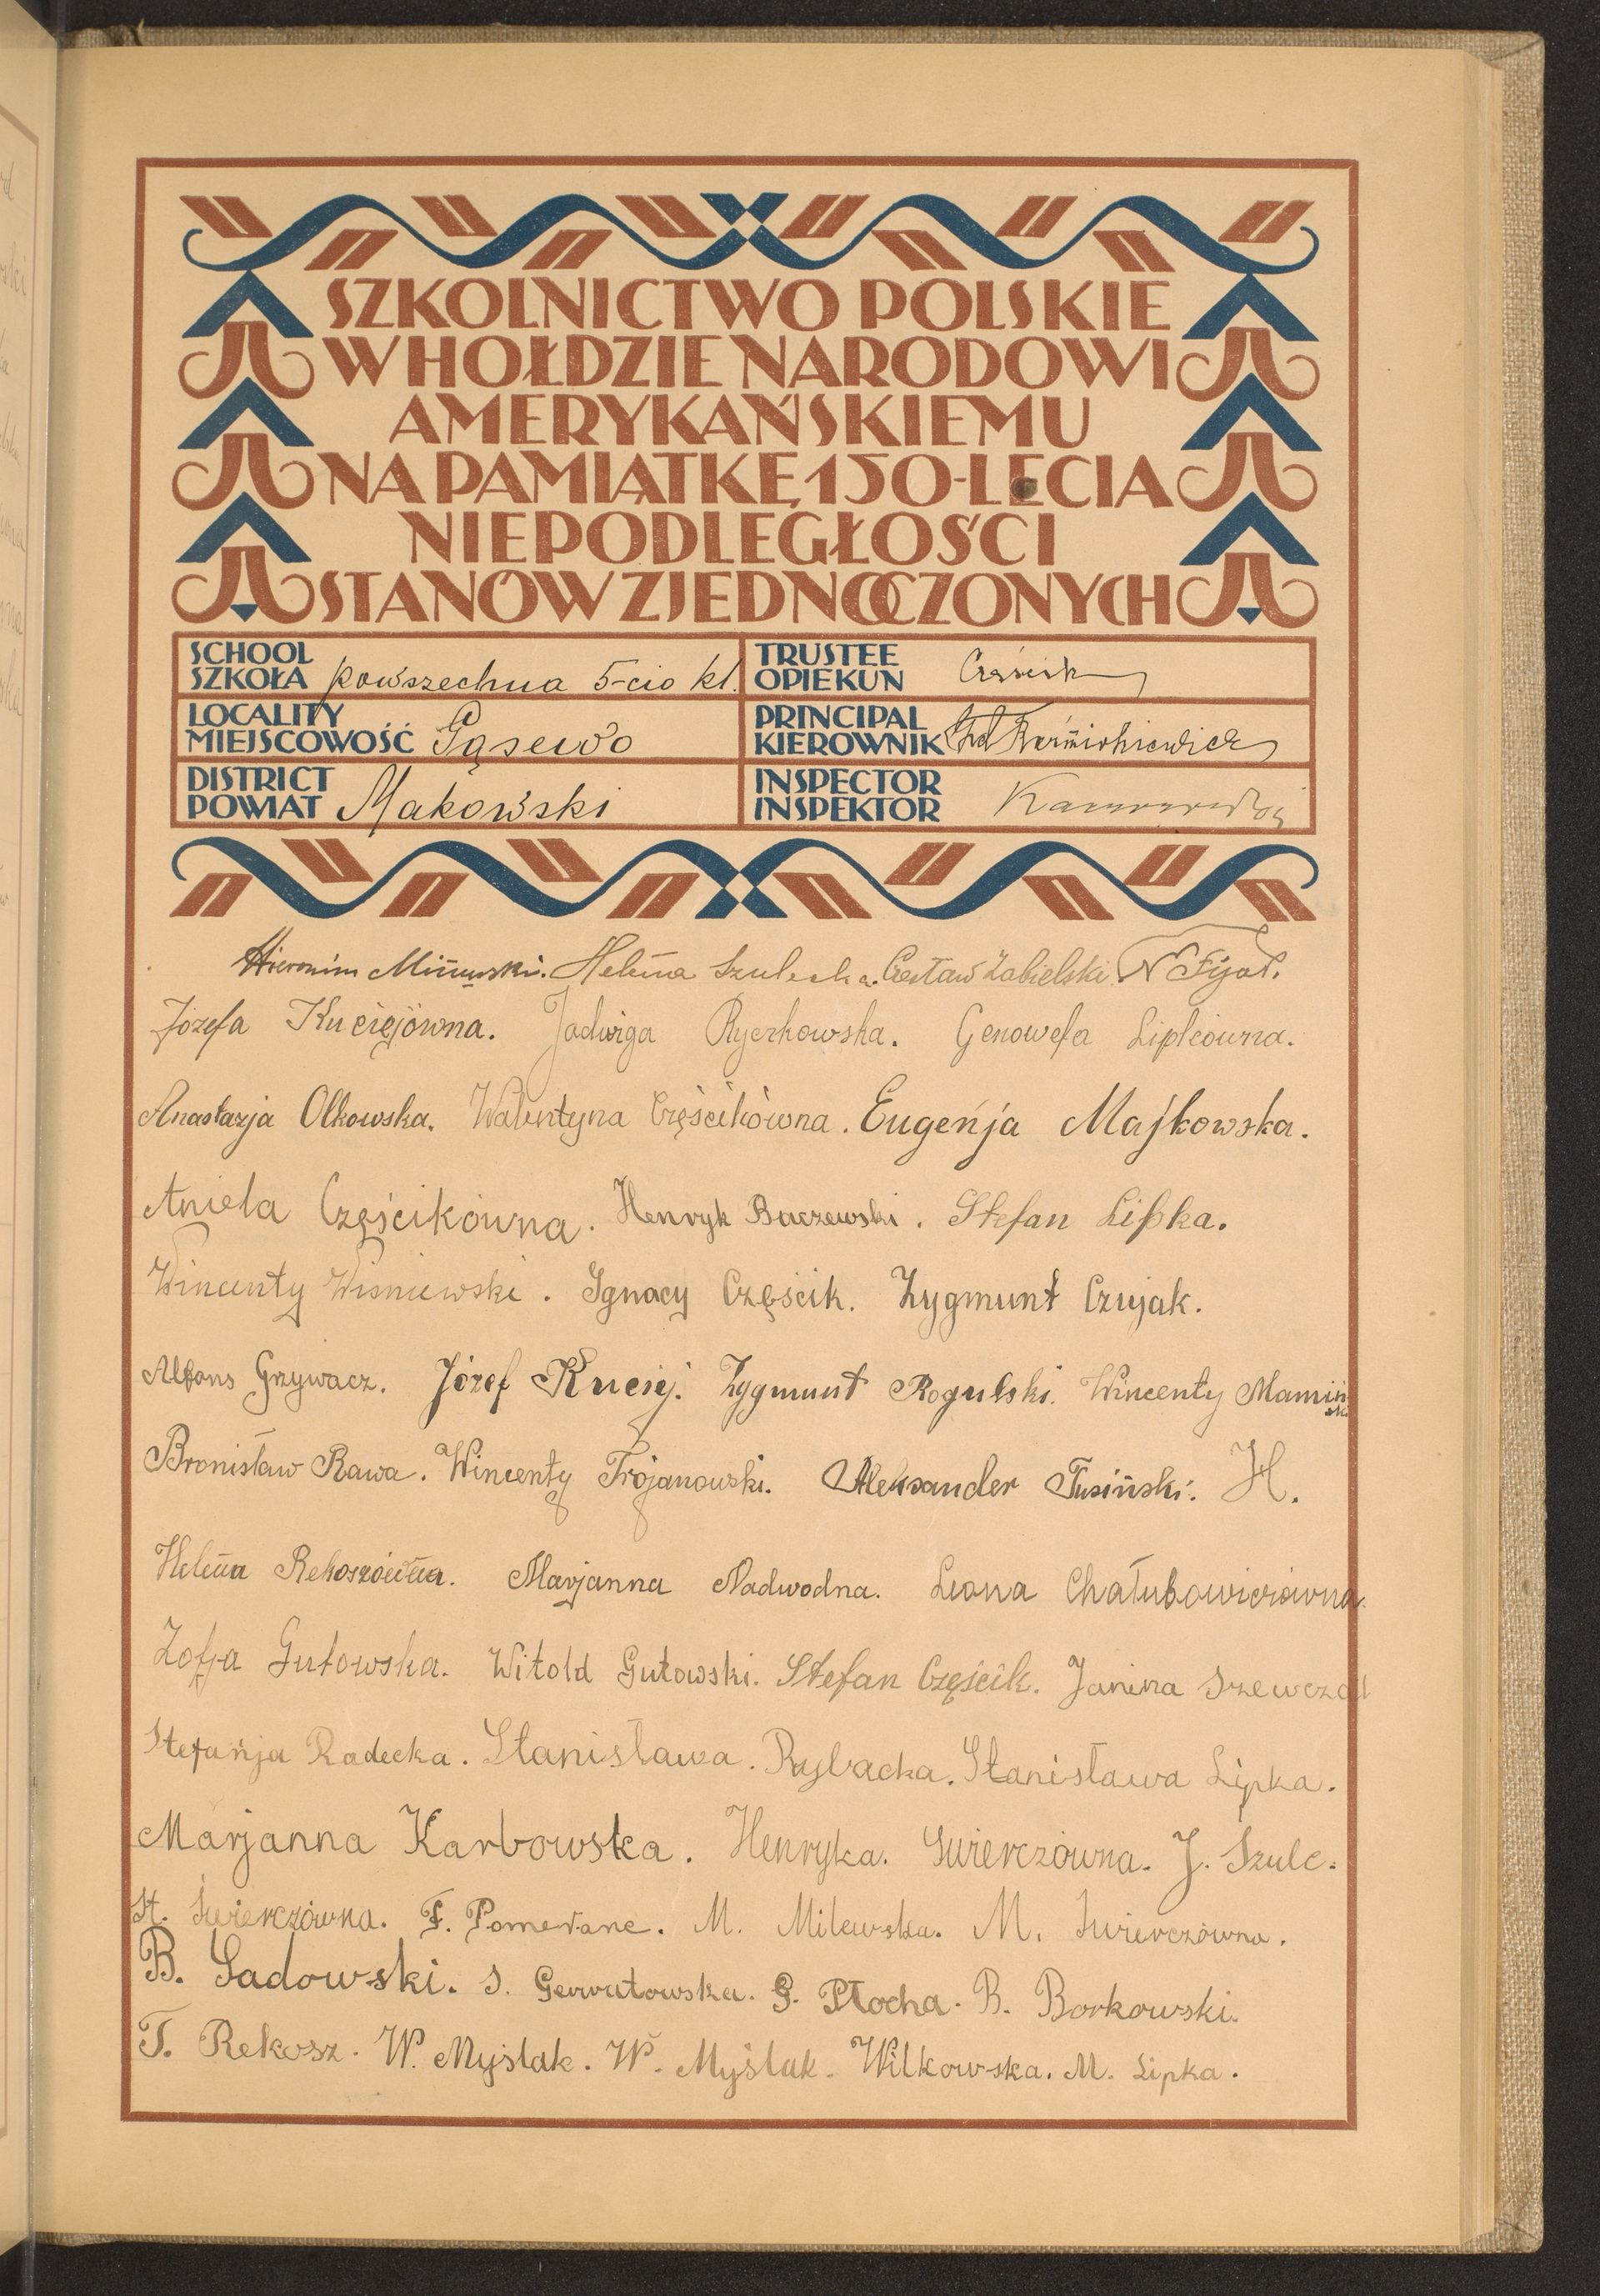 SZKOLNICTWO POLSKIE
W HOŁDZIE NARODOWI
AMERYKAŃSKIEMU
NA PAMIĄTKĘ 150-LECIA
NIEPODLEGŁOŚCI
STANÓW ZJEDNOCZONYCH
SCHOOL
SZKOŁA powszechna 5-cio kl.
TRUSTEE
OPIEKUN Częścik
LOCALITY
MIEJSCOWOŚĆ Gąsewo
PRINCIPAL
KIEROWNIK
DISTRICT
POWIAT Makowski
INSPECTOR
INSPEKTOR
Hieronim Helena Szulecka. Czesław Zabielski. Fijoł.
Józefa Kuciejówna. Jadwiga Ryczkowska. Genowefa Lipkówna.
Anastazja Olkowska. Walentyna Częścikówna. Eugenja Majkowska.
Aniela Częścikówna. Henryk Baczewski. Stefan Lipka.
Wincenty Wisniewski. Ignacy Częścik. Zygmunt Czujak.
Alfons Grzywacz. Józef Kuciej. Zygmunt Rogulski. Wincenty Mamiński
Bronisław Rawa. Wincenty Trojanowski. Aleksander Tusiński. H.
Helena Rekoszówna. Marjanna Nadwodna. Leona Chałubowiczówna.
Zofja Gutowska. Witold Gutowski. Stefan Częścik. Janina
Stefanja Radecka. Stanisława. Rybacka. Stanisława Lipka.
Marjanna Karbowska. Henryka. Świerczówna. J. Szulc.
St. Świerczówna. F. Pomerane. M. Milewska. M. Swierczówna.
B. Sadowski. S. Gerwatowska. G. Płocha. B. Borkowski.
T. Rekosz. W. Myślak. W. Myślak. Wilkowska. M. Lipka.